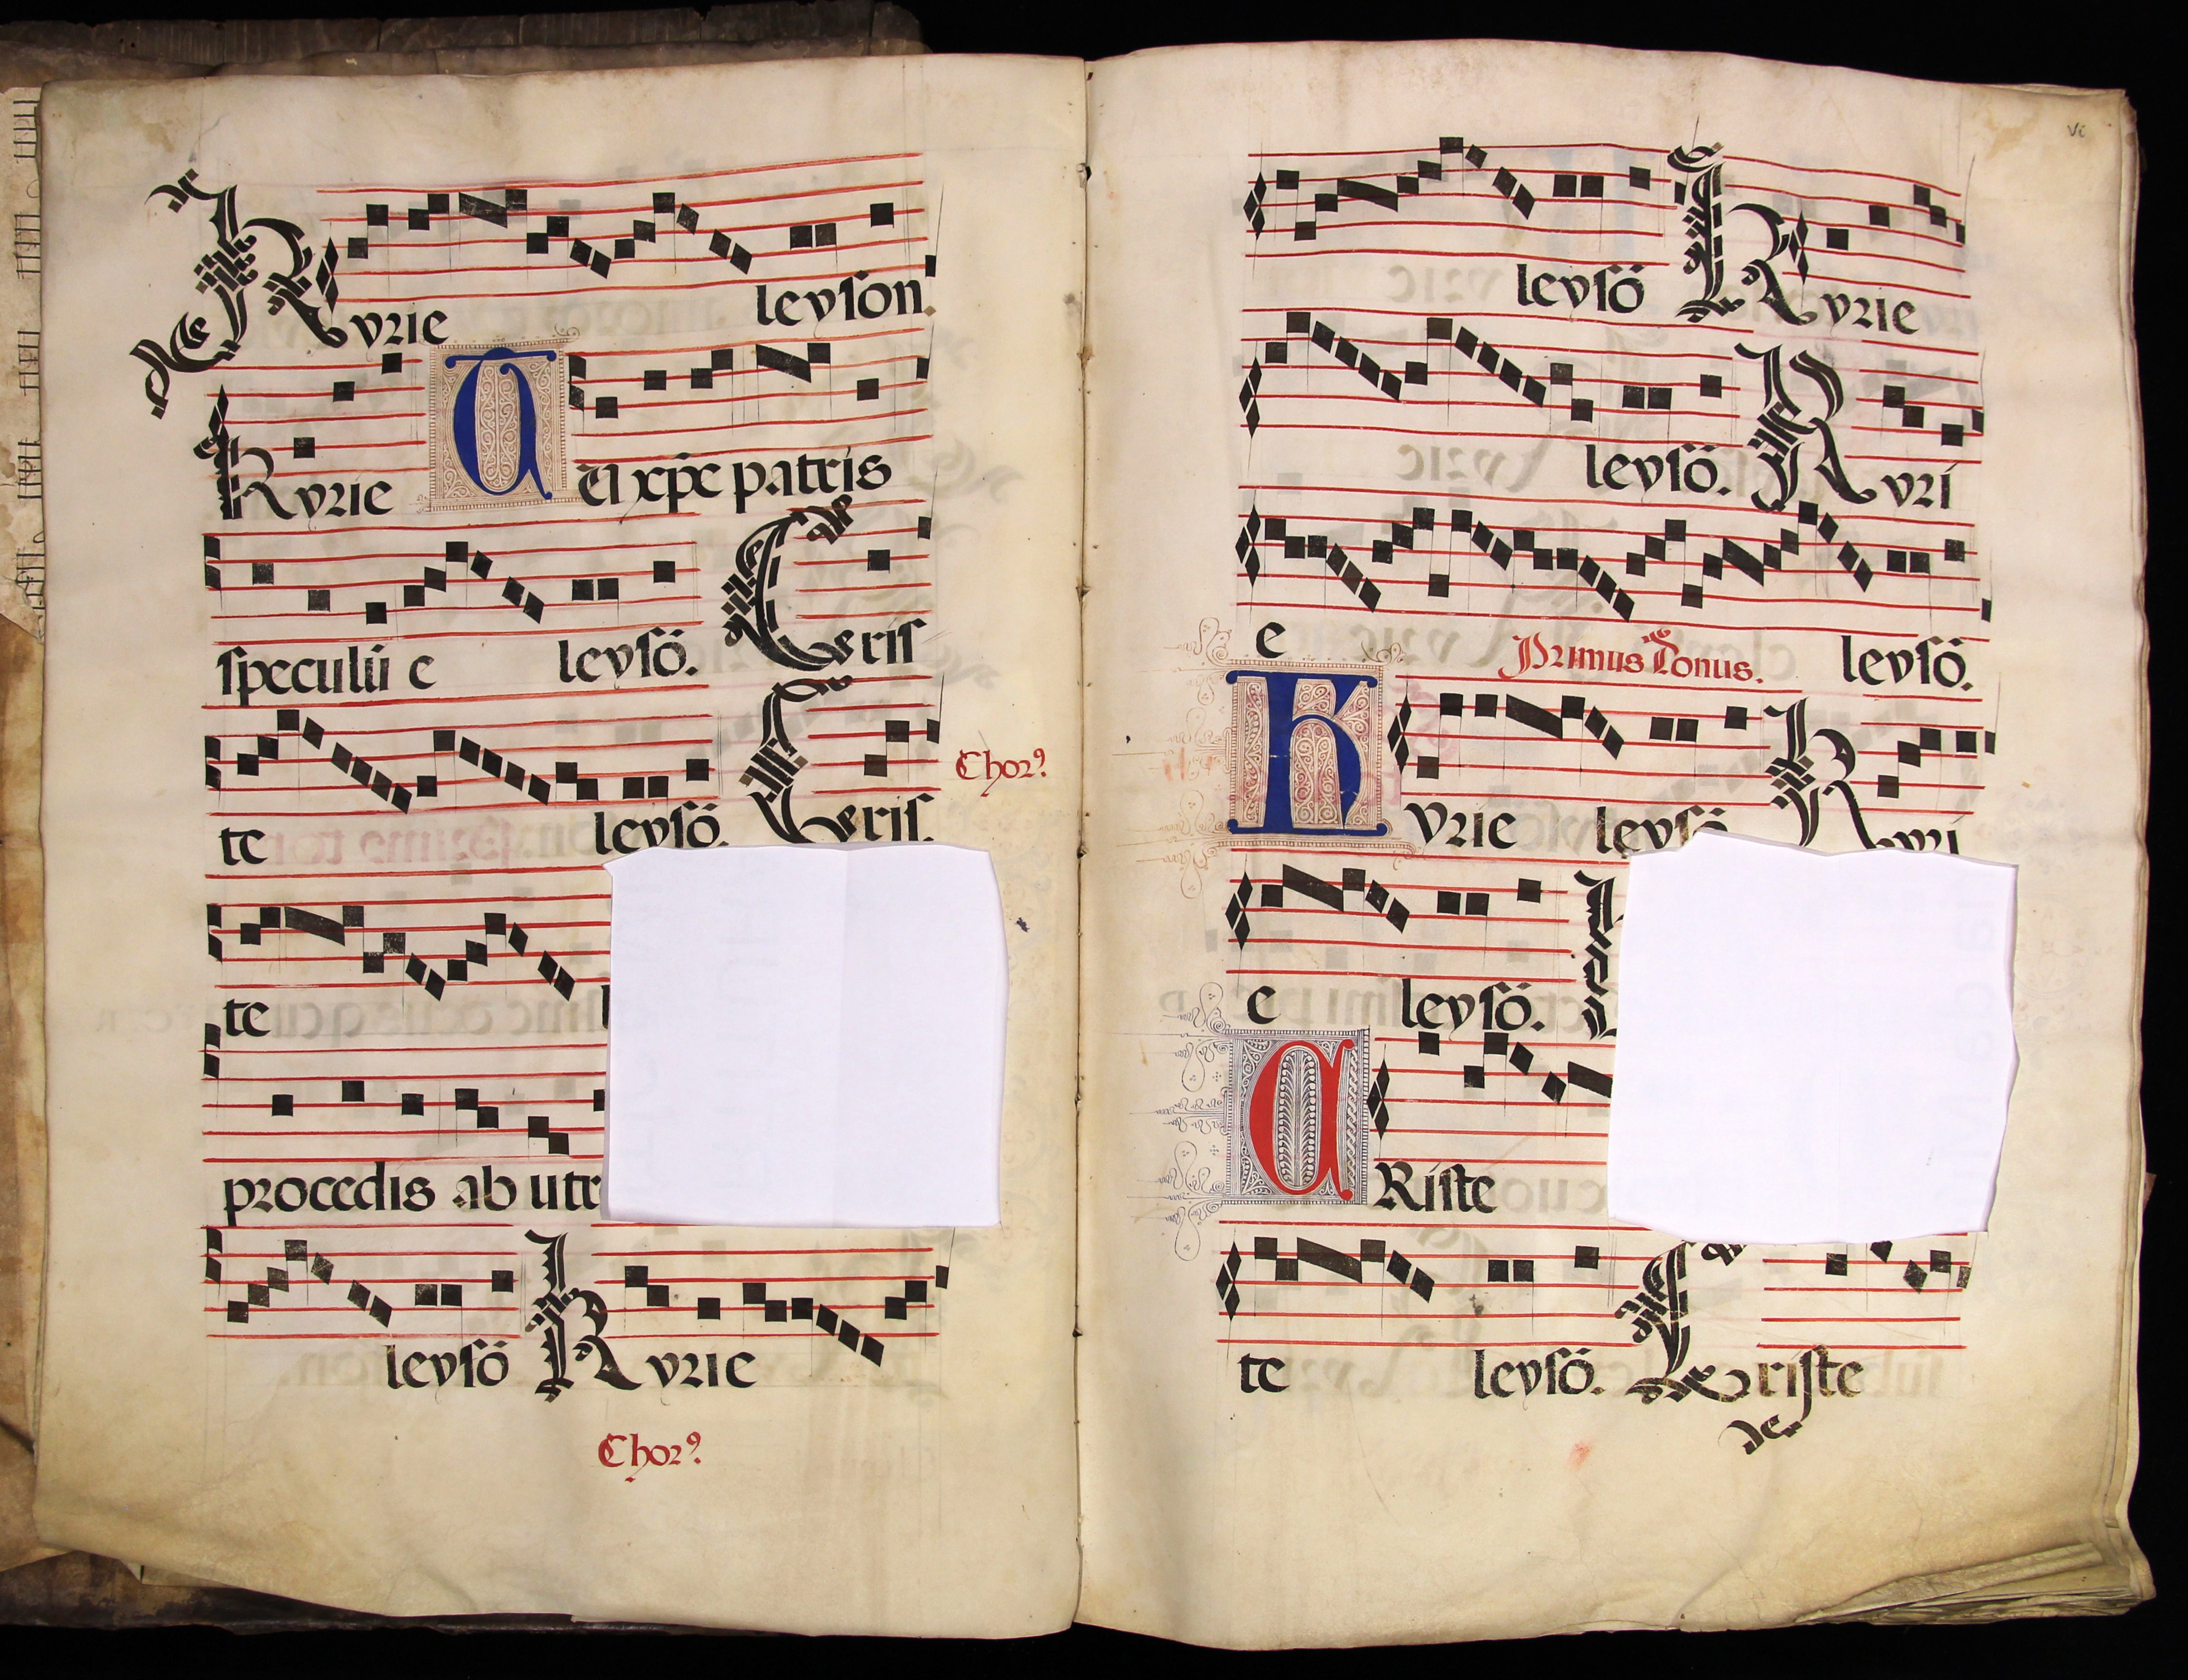 Kyrie leyson.
Kyrie Qui xp̄e patris
speculū e leysō. Ceris
te leysō. Ceris.
Chorꝰ
te
procedis ab utr
leysō Kyrie
Chorꝰ
vi
leysō Kyrie
leysō. Kyri
e leysō.
Primus Tonus.
Kyrie leysō Kyri
e leysō.
CRiste
te leysō. Criste